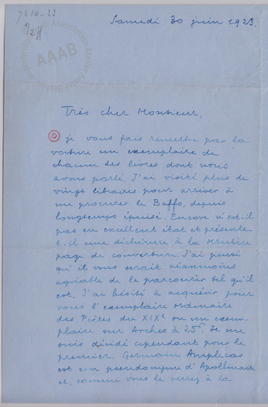 AAAB
Samedi 30 juin 1923.
Très cher Monsieur,
je vous fais remettre par la
voiture un exemplaire de
chacun des livres dont nous
avons parlé. J'ai visité plus de
vingt libraires pour arriver à
me procurer le Baffo, depuis
longtemps épuisé. Encore n'est-il
pas en excellent état et présente
t-il une déchirure à la
page de couverture. J'ai pensé
qu'il vous serait néanmoins
agréable de le parcourir tel qu'il
est. J'ai hésité à acquérir pour
vous l'exemplaire ordinaire
des Poètes du XIXe ou un exem-
plaire sur Arches à 25f. Je me
suis décidé cependant pour le
premier. Germain Amplecas
est un pseudonyme d'Apollinaire
et, comme vous le verrez à la